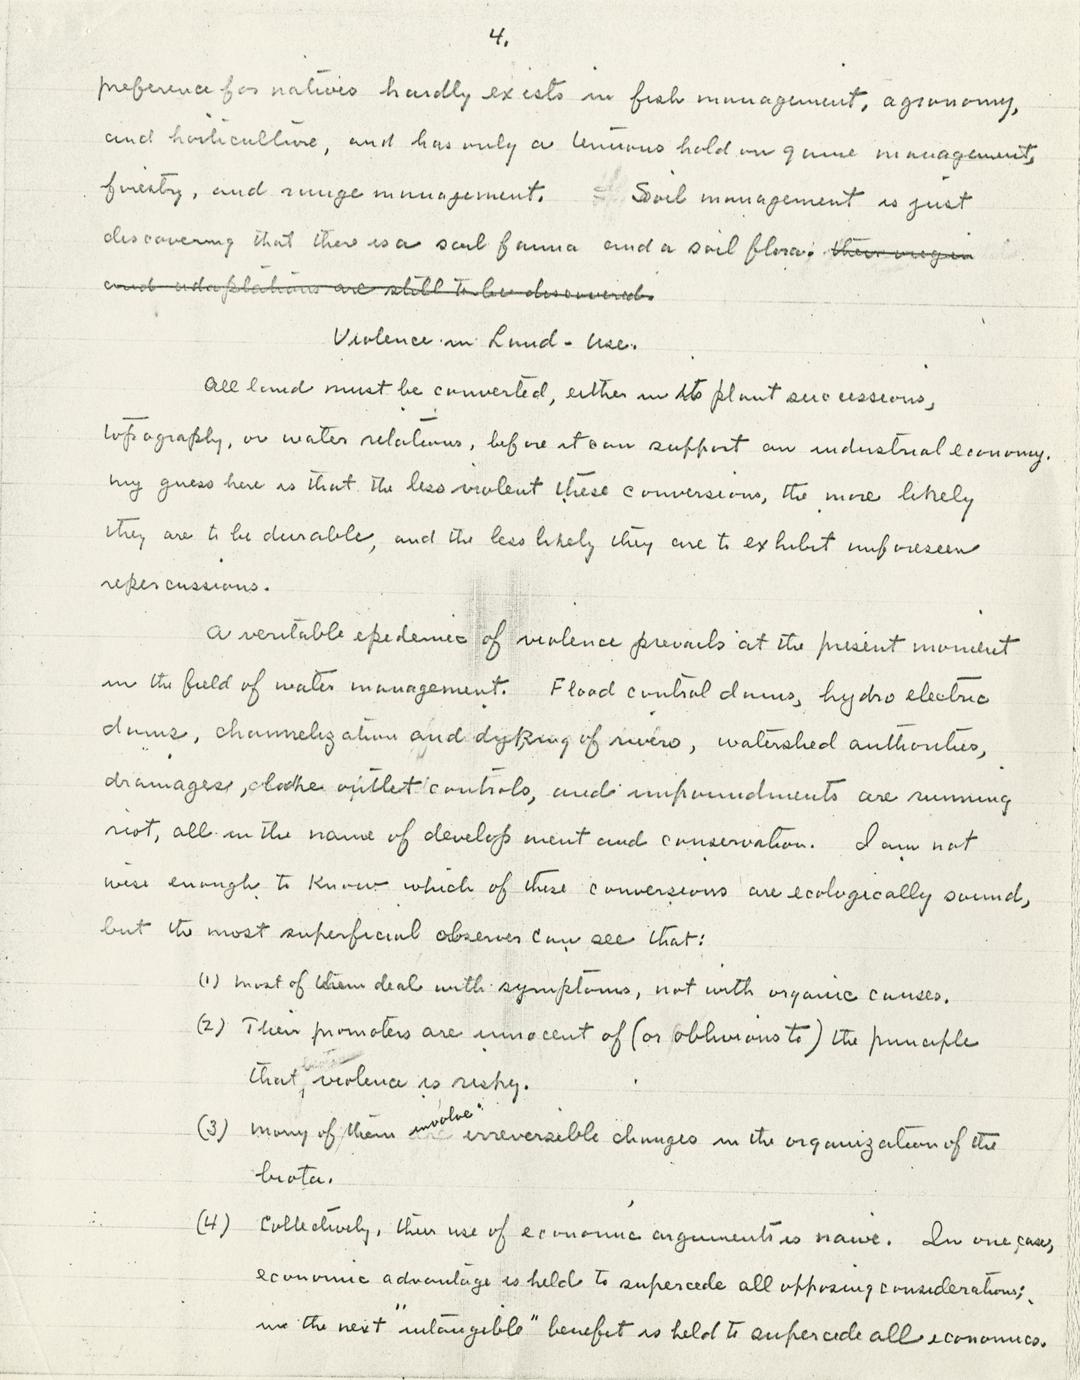 4.
preference for natives hardly exists in fish management, agronomy,
and horticulture, and has only a tenuous hold on game management,
forestry, and range management. Soil management is just
discovering that there is a soil fauna and a soil flora; their origin
and adaptations are still to be discovered.
Violence in Land-Use.
All land must be converted, either in its plant successions,
topography, or water relations, before it can support an industrial economy.
My guess here is that the less violent these conversions, the more likely
they are to be durable, and the less likely they are to exhibit unforeseen
repercussions.
A veritable epidemic of violence prevails at the present moment
in the field of water management. Flood control dams, hydro electric
dams, channelization and dyking of rivers, watershed authorities,
drainages, lake outlet controls, and impoundments are running
riot, all in the name of development and conservation. I am not
wise enough to know which of these conversions are ecologically sound,
but the most superficial observer can see that:
(1) Most of them deal with symptoms, not with organic causes.
(2) Their promoters are innocent of (or oblivious to) the principle
that violence is risky.
(3) Many of them involve irreversible changes in the organization of the
biota.
(4) Collectively, their use of economic arguments is naive. In one case,
economic advantage is held to supercede all opposing considerations;
in the next "intangible" benefit is held to supercede all economics.